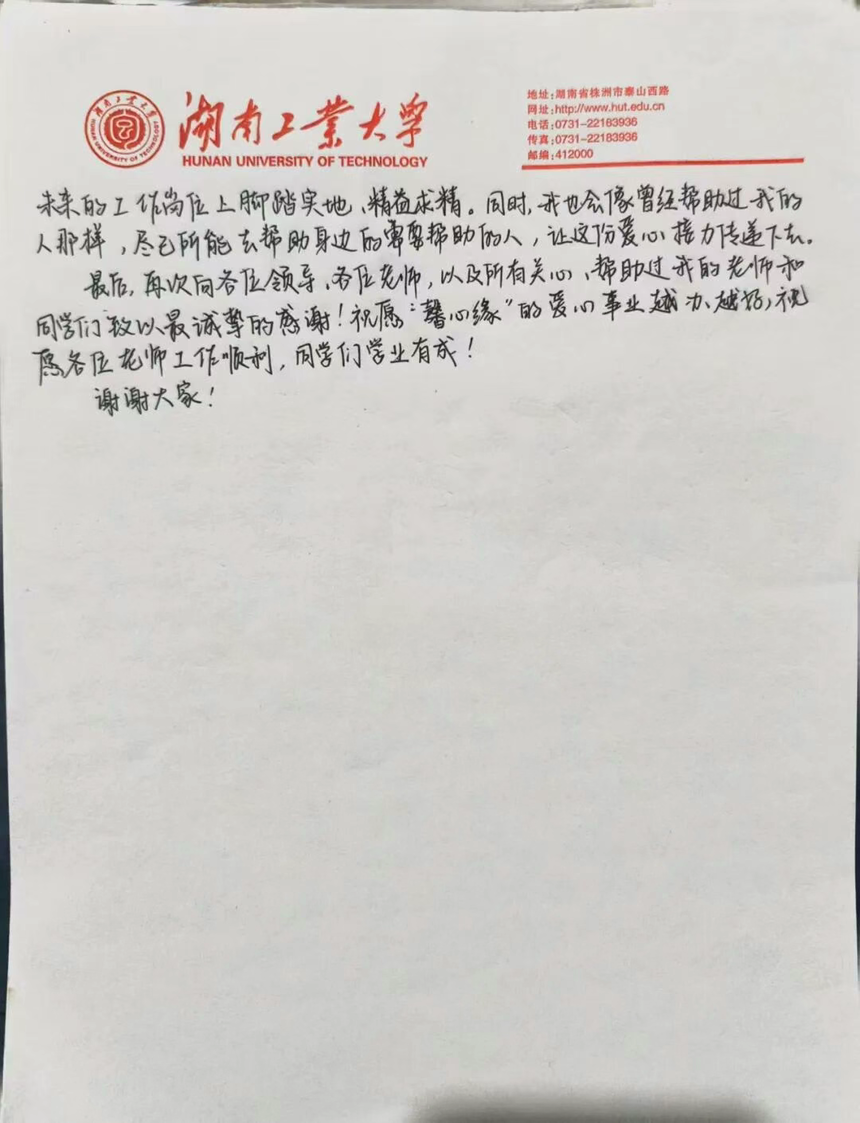 湖南工业大学
HUNAN UNIVERSITY OF TECHNOLOGY
湖南工业大学
HUNAN UNIVERSITY OF TECHNOLOGY
地址:湖南省株洲市泰山西路
网址:http://www.hut.edu.cn
电话:0731-22183936
传真:0731-22183936
邮编:412000
未来的工作岗位上脚踏实地、精益求精。同时,我也会像曾经帮助过我的
人那样,尽己所能去帮助身边的需要帮助的人,让这份爱心接力传递下去。
最后,再次向各位领导、各位老师,以及所有关心、帮助过我的老师和
同学们致以最诚挚的感谢!祝愿“馨心缘”的爱心事业越办越好,祝
愿各位老师工作顺利,同学们学业有成!
谢谢大家!